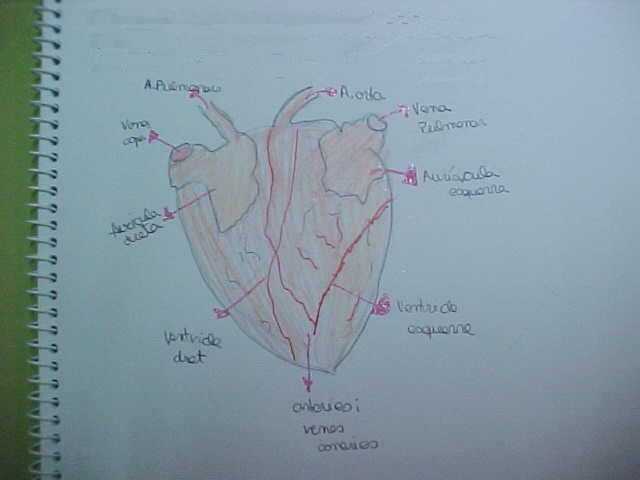 A. Pulmonar
Aorta
Vena
Pulmonar
Vena
cava
Aurícula
esquerra
Aurícula
dreta
Ventricle
esquerre
Ventricle
dret
arteries i
venes
conaries